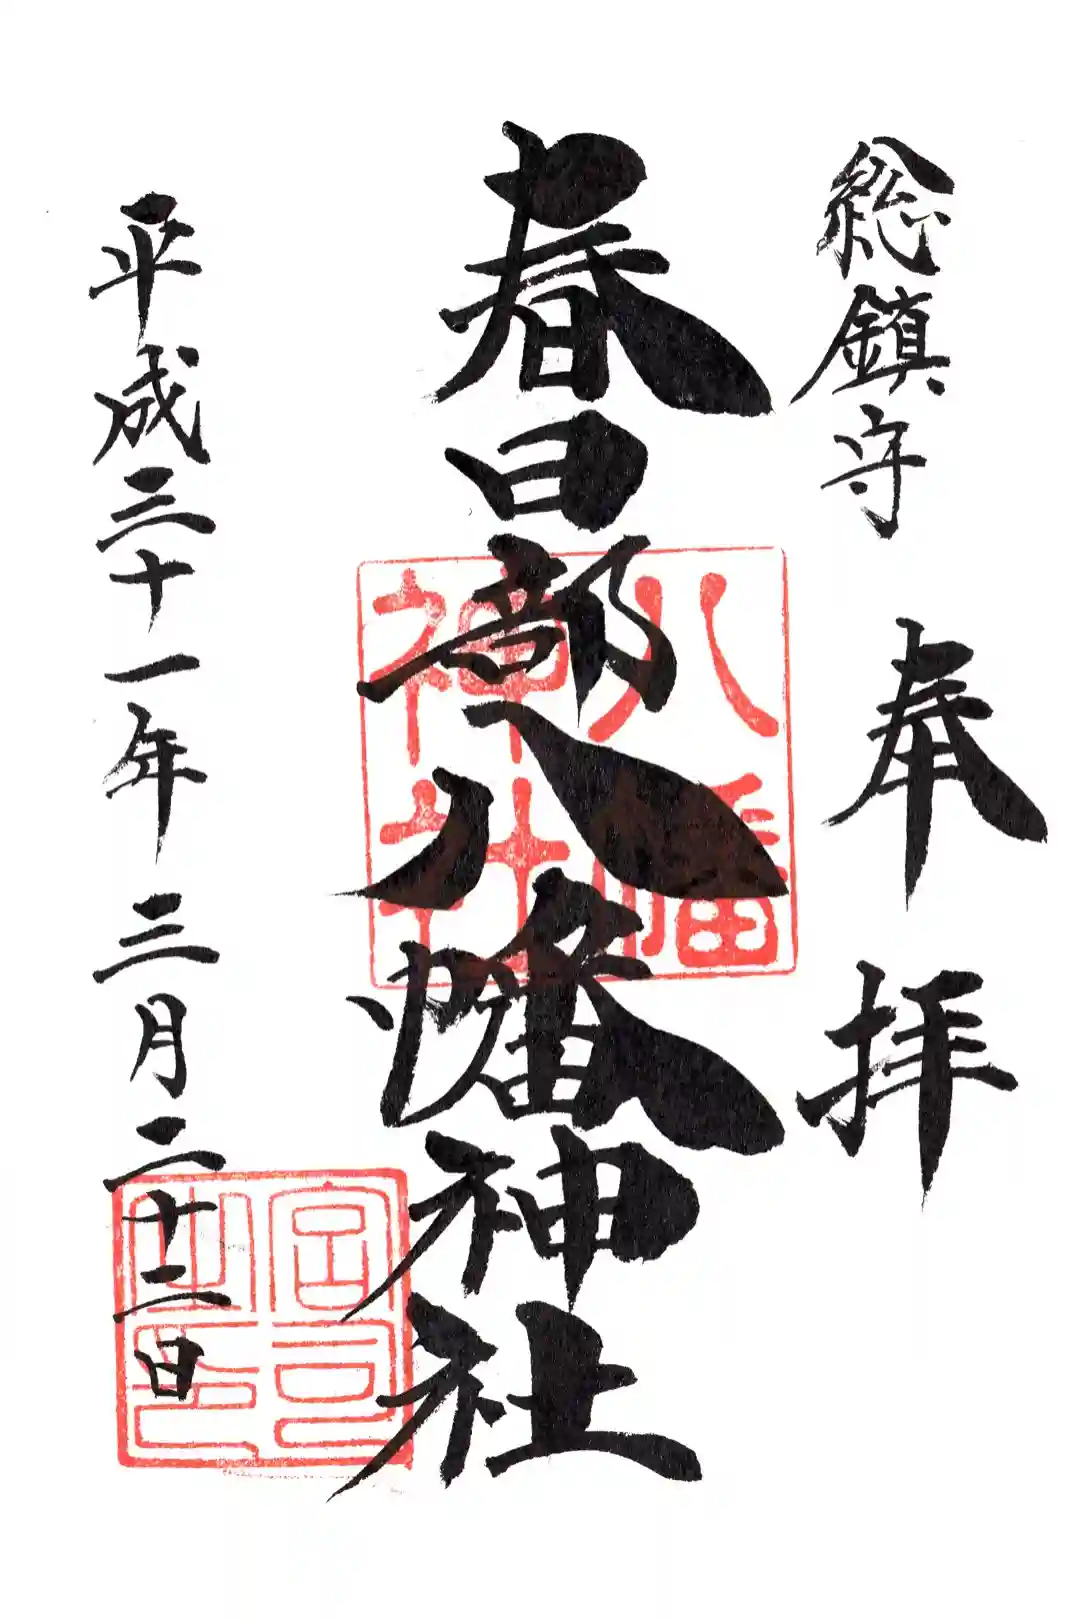 総鎮守
奉拝
春日部八幡神社
八幡神社
平成三十一年三月二十二日
宮司之印